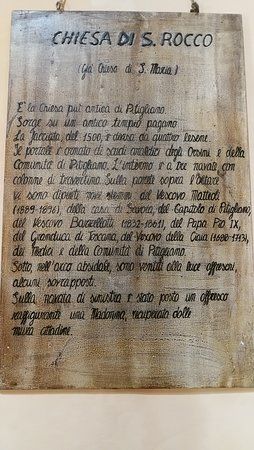 CHIESA DI S. ROCCO
(Già Chiesa di S. Maria)
E' la Chiesa più antica di Pitigliano.
Sorge su un antico tempio pagano.
La facciata, del 1500, è divisa da quattro lesene.
Il portale è ornato di scudi araldici degli Orsini e della
Comunità di Pitigliano. L'interno è a tre navate con
colonne di travertino. Sulla parete sopra l'altare
vi sono dipinti nove stemmi: del Vescovo Matteoli
della casa di Savoia, del Capitolo di Pitigliano,
del Vescovo Barzellotti (1832-1861), del Papa Pio IX,
del Granduca di Toscana, del Vescovo della Ciaia
dei Medici e della Comunità di Pitigliano.
Sotto nell'arco absidale, sono venuti alla luce affreschi,
alcuni sovrapposti.
Sulla navata di sinistra è stato posto un affresco
raffigurante una Madonna, recuperata dalle
mura cittadine.